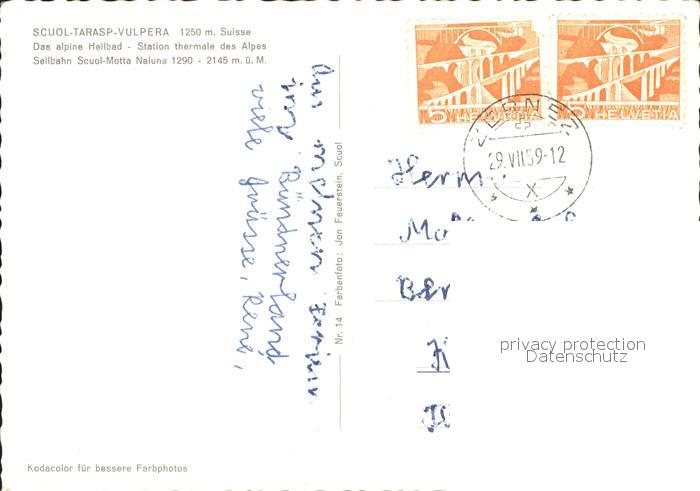 SCUOL-TARASP-VULPERA 1250 m. Suisse
Das alpine Heilbad - Station thermale des Alpes
Seilbahn Scuol-Motta Naluns 1290 - 2145 m. ü. M.
Aus meinen Ferien
im Bündnerland
viele Grüsse, René,
Nr. 14 Farbenfoto: Jon Feuerstein, Scuol
5 HELVETIA
5 HELVETIA
ZERNEZ
29.VII.59-12
X
Herrn
privacy protection
Datenschutz
Kodacolor für bessere Farbphotos